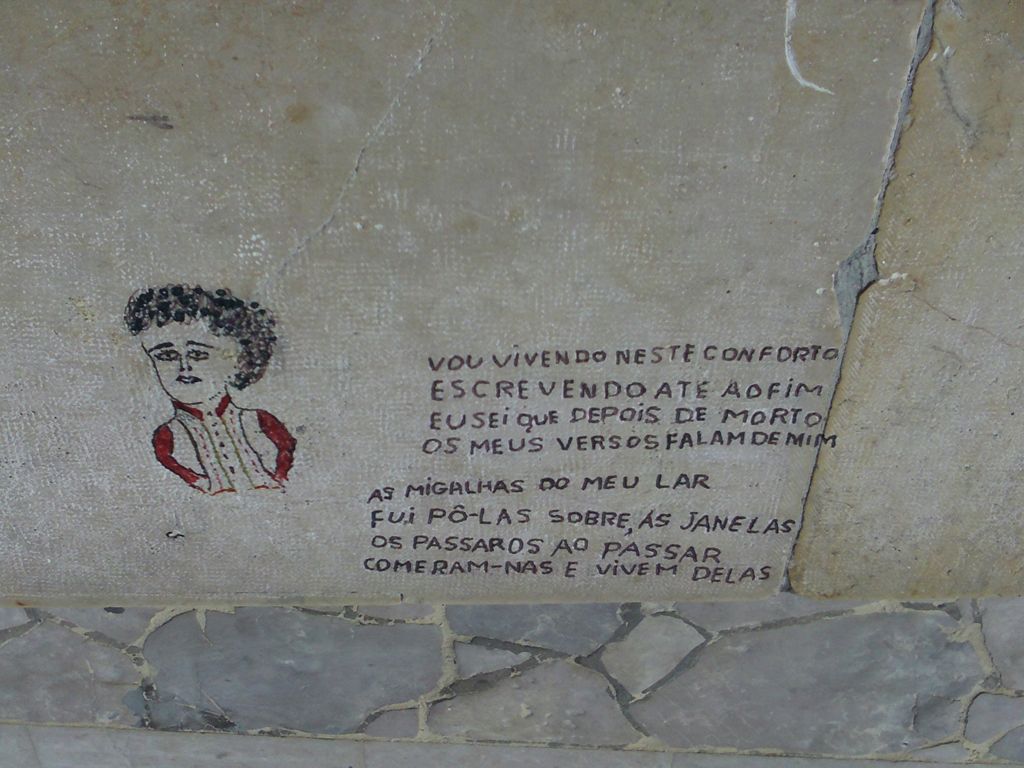 VOU VIVENDO NESTE CONFORTO
ESCREVENDO ATÉ AOFIM
EU SEI QUE DEPOIS DE MORTO
OS MEUS VERSOS FALAM DE MIM
AS MIGALHAS DO MEU LAR
FUI PÔ-LAS SOBRE, ÁS JANELAS
OS PASSAROS AO PASSAR
COMERAM-NAS E VIVEM DELAS